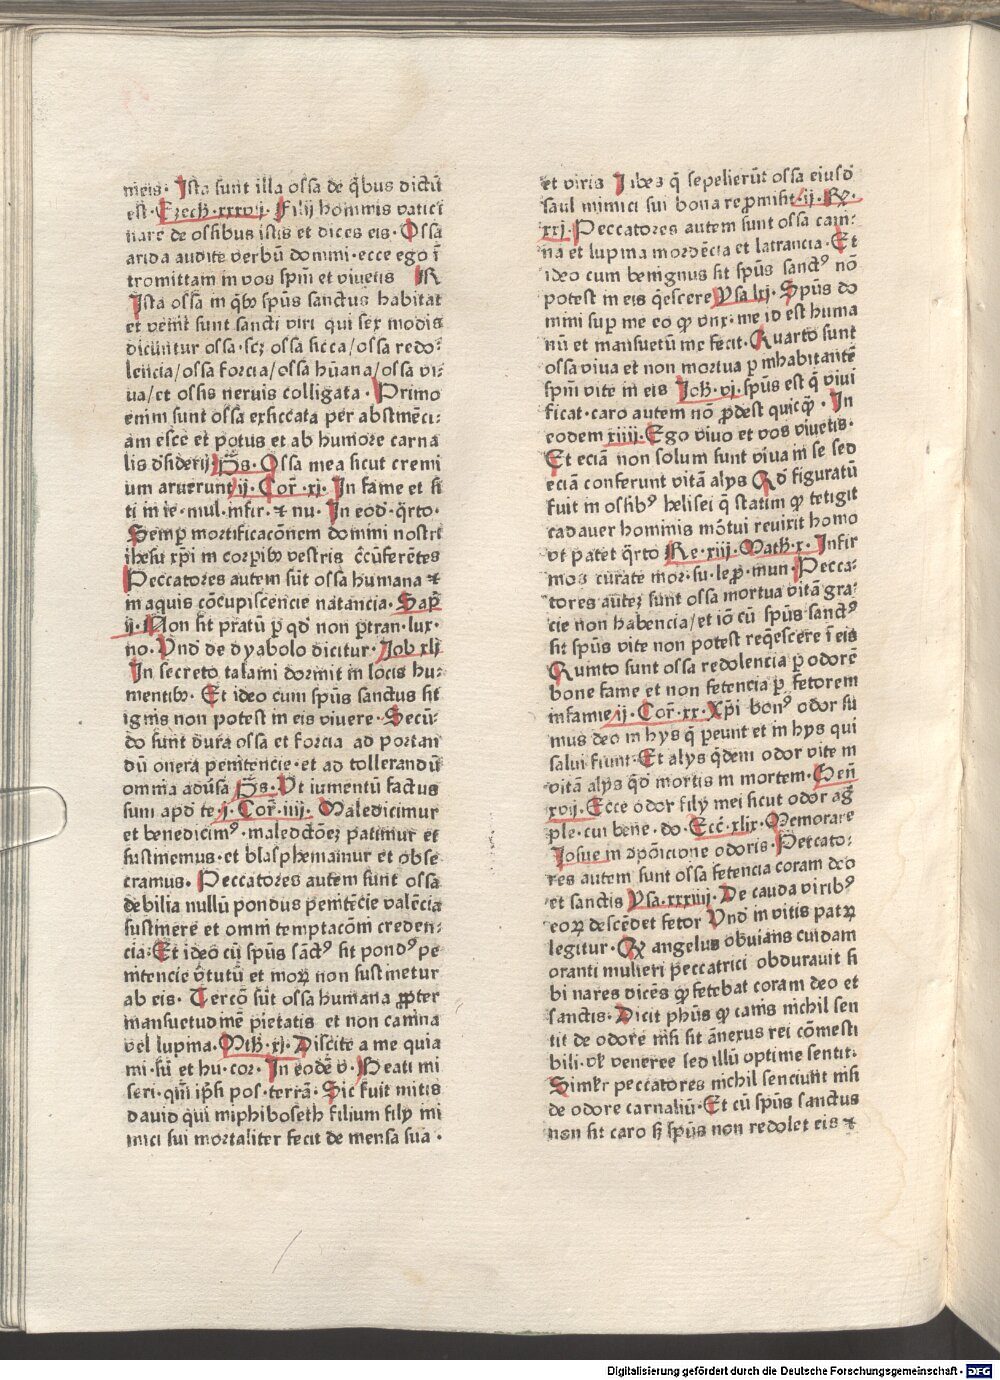 meis· Ista sunt illa ossa de q̄bus dictū
est·Ezech·xxxvij Filij hominis vatici
nare de ossibus istis et dices eis· Ossa
arida audite verbū domini·ecce ego ī
tromittam in vos spm̄ et viuetis R
Ista ossa in q̄bꝫ spūs sanctus habitat
et venit sunt sancti viri qui sex modis
dicūntur ossa·scꝫ ossa sicca/ossa redo-
lencia/ossa forcia/ossa hūana/ossa vi-
ua/et ossis neruis colligata·Primo
enim sunt ossa exsiccata per abstinēci-
am esce et potus et ab humore carna
lis dˢsiderij ps̄·Ossa mea sicut cremi
um aruerunt ij·Cor̄·xj·In fame et si
ti in ie·mul·infir·⁊ nu·In eod·q̄rto·
Semꝑ mortificacōnem domini nostri
ihesu xp̄i in corpibꝫ vestris c̄cūferētes
Peccatores autem sūt ossa humana ⁊
in aquis cōcupiscencie natancia·Sap̄
ij·Non sit pratū ꝑ qd̄ non ꝑtran·lux·
no·Vnd̄ de dyabolo dicitur·Job xlj
In secreto talami dormit in locis hu-
mentibꝫ·Et ideo cum spūs sanctus sit
ignis non potest in eis viuere·Secū-
do sunt dura ossa et forcia ad portan
dū onera penitencie·et ad tollerandū
omnia adūsa ps̄·Vt iumentū factus
sum apd̄ te·j·Cor̄·iiij·Maledicimur
et benedicimꝰ·maledictōeꝫ patimur et
sustinemus·et blasphemamur et obse
cramus·Peccatores autem sunt ossa
debilia nullū pondus penitēcie valēcia
sustinere et omnī temptacōm creden-
cia·Et ideo cū spūs sāctꝰ sit pondꝰ pe
nitencie v̄tutū et moꝝ non sustinetur
ab eis·Tercō sūt ossa humana ꝓpter
mansuetudinē pietatis et non canina
vel lupina·Mth̄·xj·Discite a me quia
mi·sū et hu·cor·In eodē v·Beati mi
seri·qm̄ ip̄si pos·terrā·Sic fuit mitis
dauid qui miphiboseth filium filij ini
mici sui mortaliter fecit de mensa sua·
et viris Jabes q̄ sepelierūt ossa eiusd̄
saul inimici sui bona reꝓmisit·ij·Rꝫ·
xxj·Peccatores autem sunt ossa cani-
na et lupina mordēcia et latrancia·Et
ideo cum benignus sit spūs sanctꝰ nō
potest in eis q̄escere Ysa lxj·Spūs do
mini suꝑ me eo ꝙ vnx·me id est huma
nū et mansuetū me fecit·Quarto sunt
ossa viua et non mortua ꝑ inhabitantē
spm̄ vite in eis Joh̄·vj·spūs est q̄ viui
ficat·caro autem nō ꝓdest quicqꝫ·In
eodem xiiij·Ego viuo et vos viuetis·
Et eciā non solum sunt viua in se sed
eciā conferunt vitā alijs Qd̄ figuratū
fuit in ossibꝰ helisei q̄ statim ꝙ tetigit
cadauer hominis mōtui reuixit homo
vt patet q̄rto Re·xiij·Math̄·x·Infir
mos curate mor·su·leꝓ·mun·Pecca-
tores auteꝫ sunt ossa mortua vitā gra-
cie non habencia/et iō cū spūs sanctꝰ
sit spūs vite non potest reqˢescere ī eis
Quinto sunt ossa redolencia ꝑ odorē
bone fame et non fetencia ꝑ fetorem
infamie ij·Cor̄·xx·Xp̄i bonꝰ odor su
mus deo in hys q̄ ꝑeunt et in hys qui
salui fiunt·Et alys q̄dem odor vite in
vitā alys q̄d mortis in mortem·Gen̄
xvij·Ecce odor filij mei sicut odor aḡ
ple·cui bene·do·Ecc̄·xlix·Memorare
Josue in ꝯpōicione odoris·Peccato-
res autem sunt ossa fetencia coram deo
et sanctis Ysa·xxxiiij·De cauda viribꝰ
eoꝝ descēdet fetor Vnd̄ in vitis patꝝ
legitur·Qꝫ angelus obuians cuidam
oranti mulieri peccatrici obdurauit si
bi nares dicēs ꝙ fetebat coram deo et
sanctis·Dicit phūs ꝙ canis nichil sen
tit de odore nisi sit ānexus rei cōmesti
bili·vl̄ veneree sed illū optime sentit·
Simlr̄ peccatores nichil senciunt nisi
de odore carnaliū·Et cū spūs sanctus
non sit caro sꝫ spūs non redolet eis ⁊
Digitalisierung gefördert durch die Deutsche Forschungsgemeinschaft - DFG